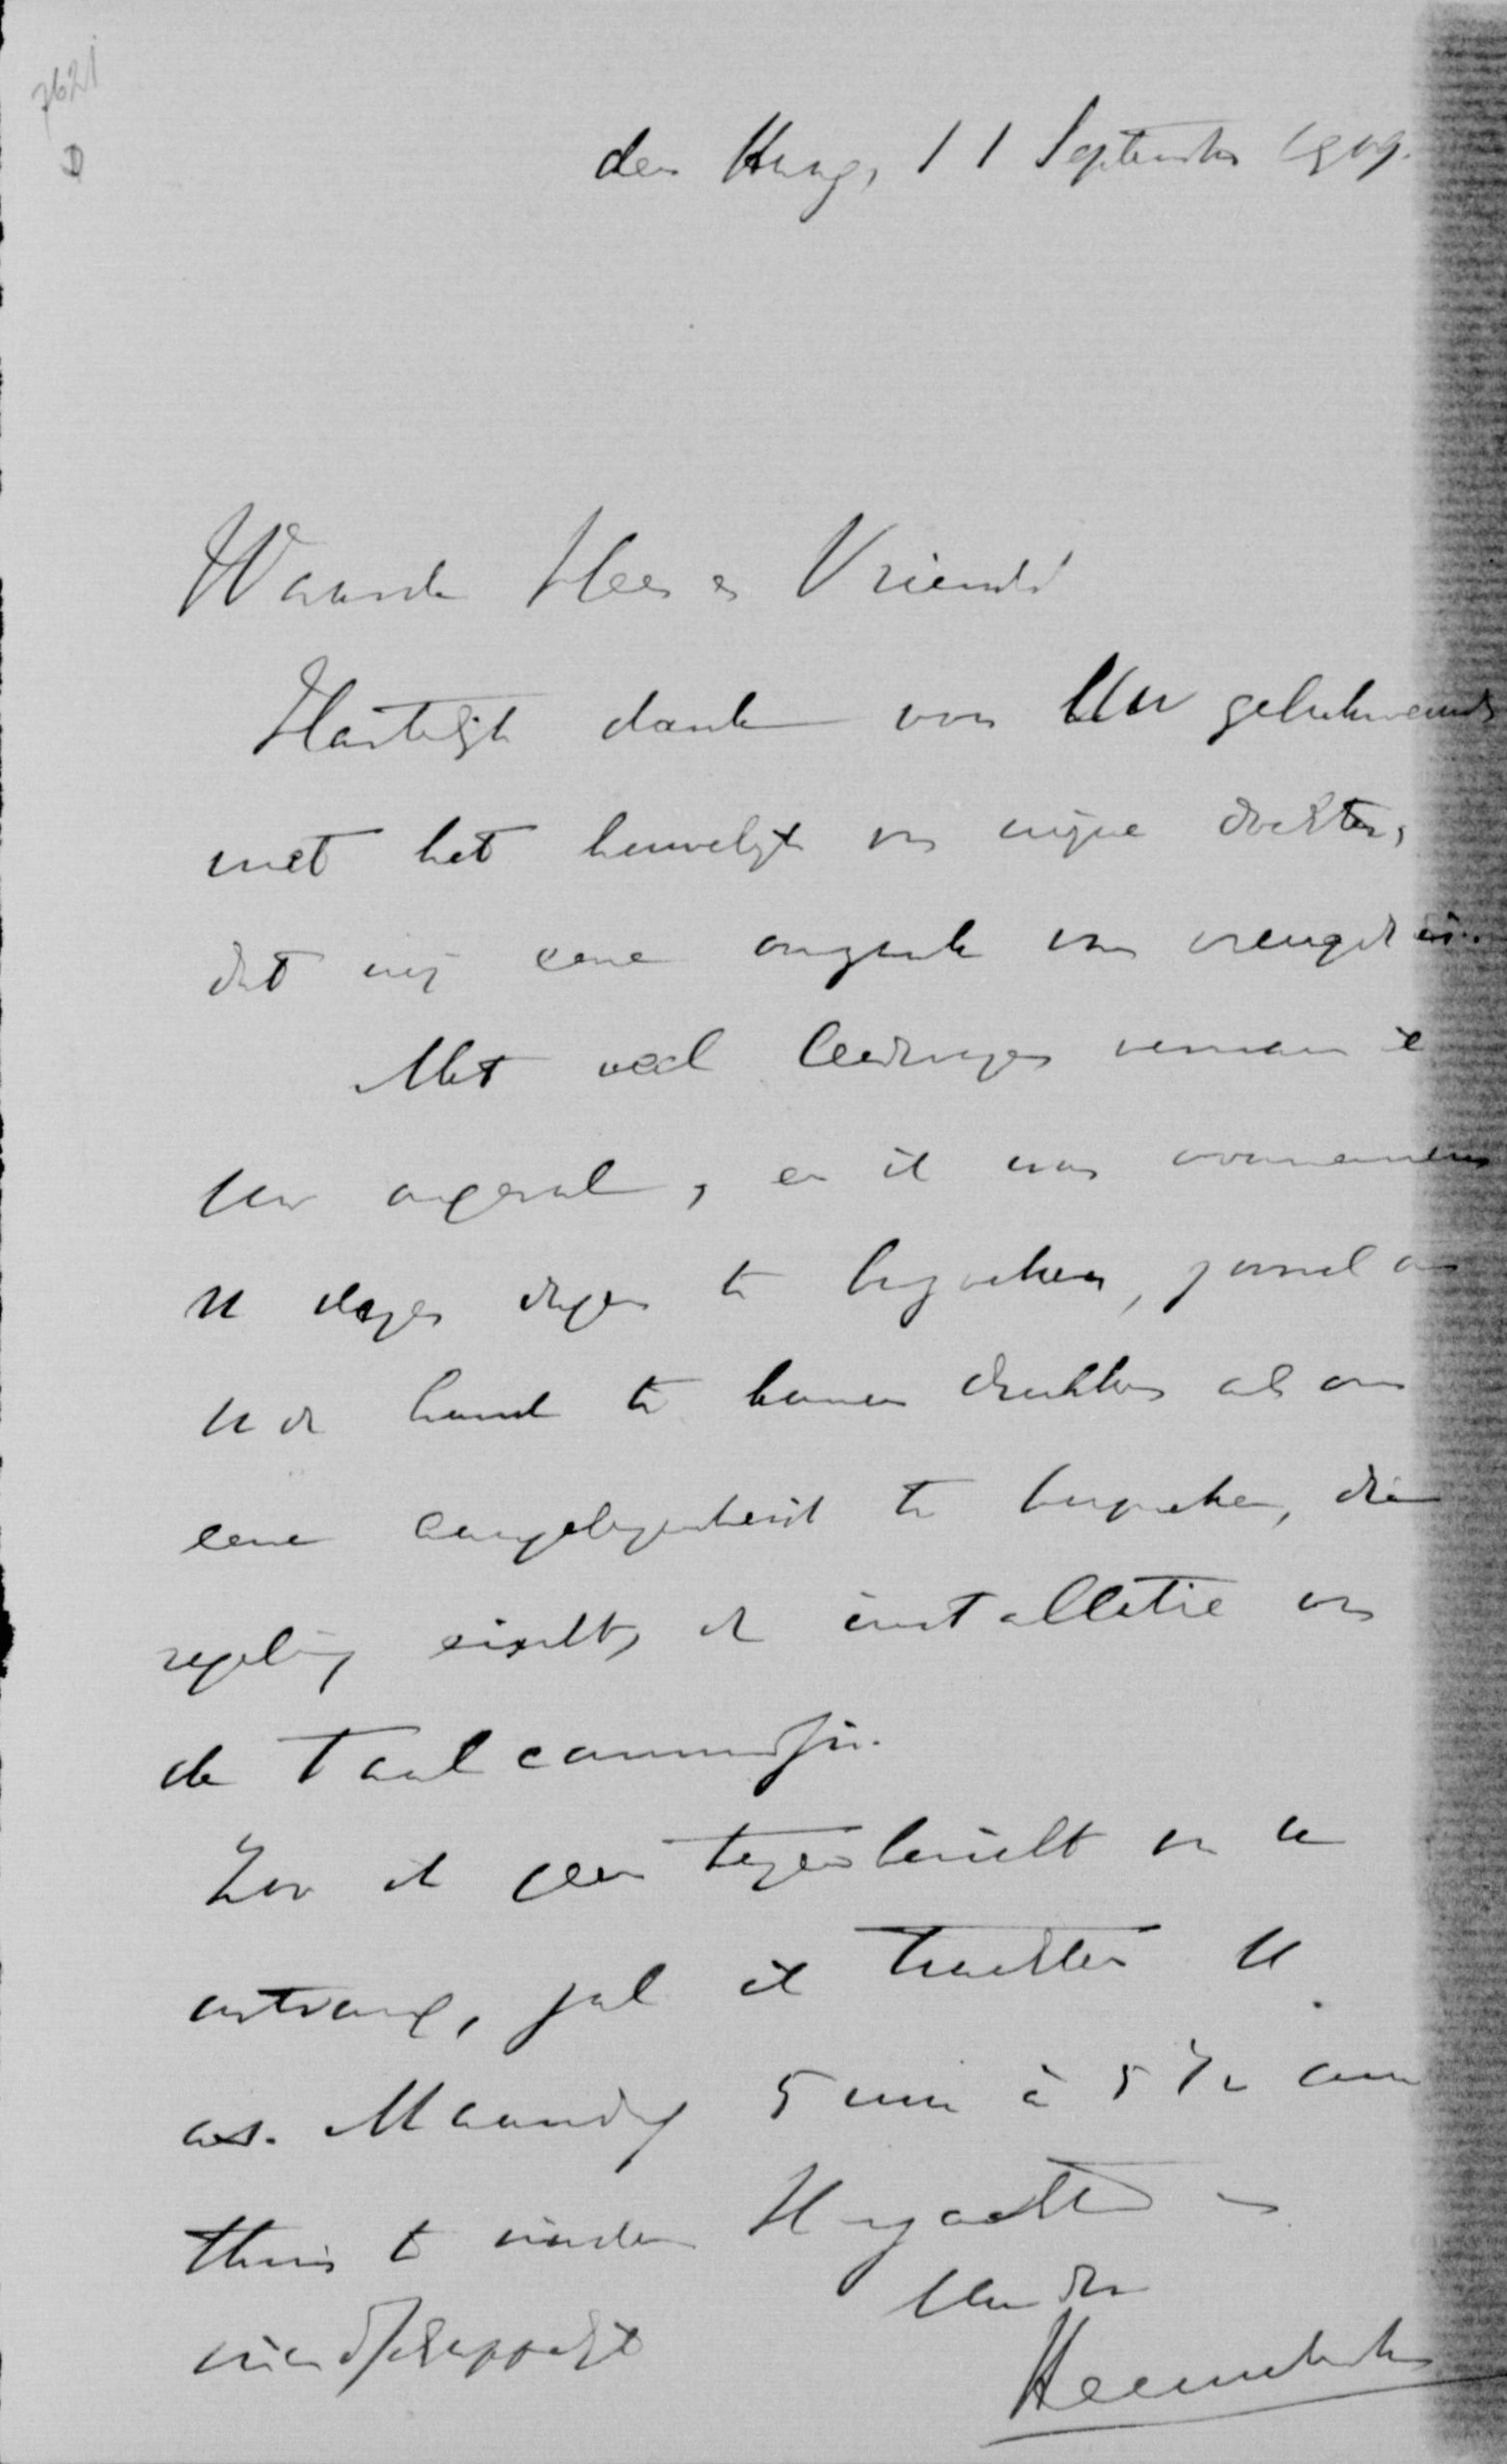 7621
D
den Haag, 11 September 1909.
Waarde Heer en Vriend!
Hartelijk dank voor Uw gelukwensch
met het huwelijk van mijne dochter,
dat mij eene oorzaak van vreugde is.
Met veel leedwezen vernam ik
Uw ongeval, en ik was voornemens
U dezer dagen te bezoeken, zoowel om
U de hand te komen drukken als om
eene aangelegenheid te bespreken, die
regeling eischt, de installatie van
de Taalcommissie.
Zoo ik geen tegenbericht van U
ontvang, zal ik trachten U
as. Maandag 5 uur à 5 1/2 aan
thuis te vinden Hoogachtend en
Uw dr
vriendschappelijk
Heemskerk